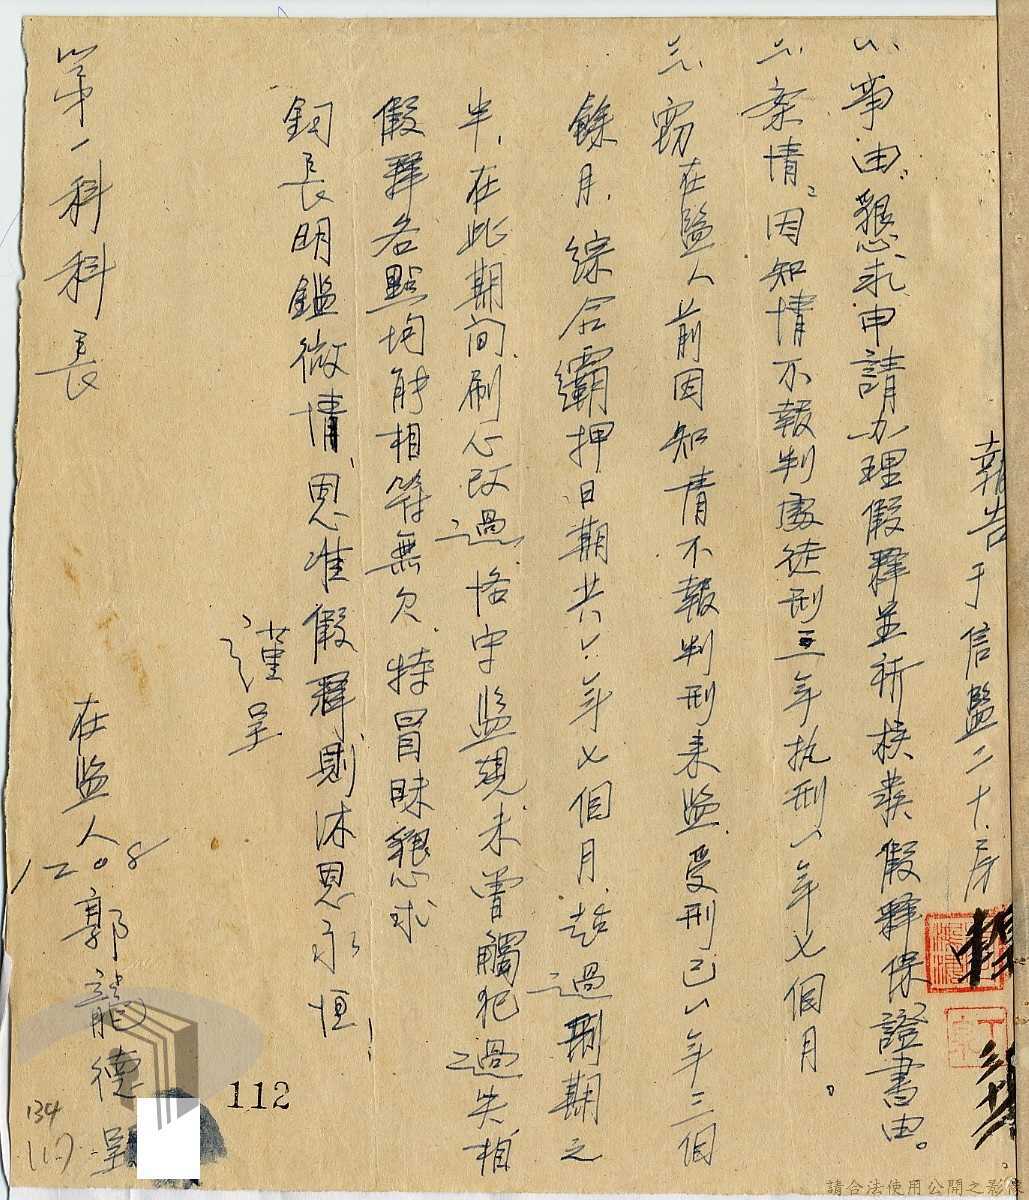 報告于信監二十房
一、事由。懇求申請办理假釋並祈核發假釋保證書由。
二、案情。因知情不報判處徒刑三年执刑一年七個月。
三、竊在監人前因知情不報判刑来监受刑已一年三個
餘月，綜合羈押日期共一年七個月，超過刑期之
半，在此期間刷心改過恪守监規未曾觸犯過失，相
假釋各點均能相符無欠，特冒昧懇求
鈞長明鑑微情，恩准假釋則沐恩永恒！
謹呈
第一科科長
在监人
1208 郭龍德 呈
112
134
(117)
請合法使用公開之影像